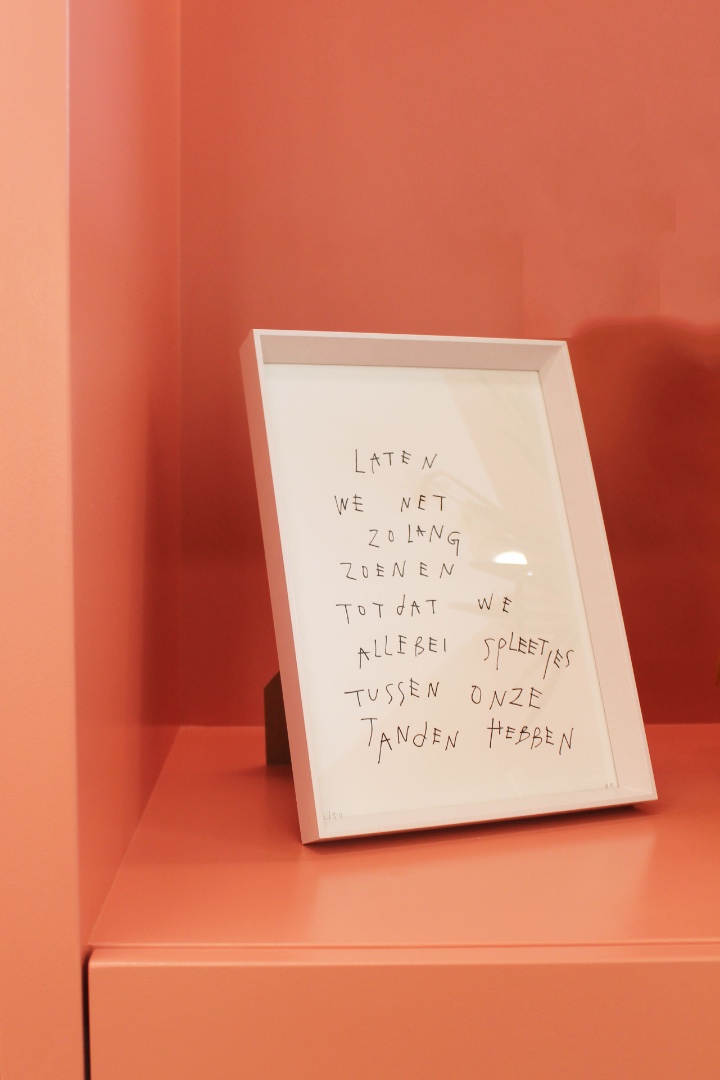 LATEN
WE NET
ZOLANG
ZOENEN
TOTdAT WE
ALLEBEI SPLEETJES
TUSSEN ONZE
TANdEN HEBBEN